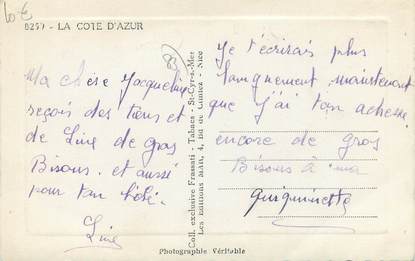 10 €
8259 - LA COTE D'AZUR
83
Ma chère Jacqueline
reçois des tiens et
de Line de gros
Bisous. et aussi
pour ton bébé.
Line
Coll. exclusive Frassati - Tabacs - St-Cyr-s-Mer
Les Editions MAR, 4, Nice
Je t'écrirais plus
longuement, maintenant
que j'ai ton adresse
encore de gros
Bisous à ma
Photographie Véritable